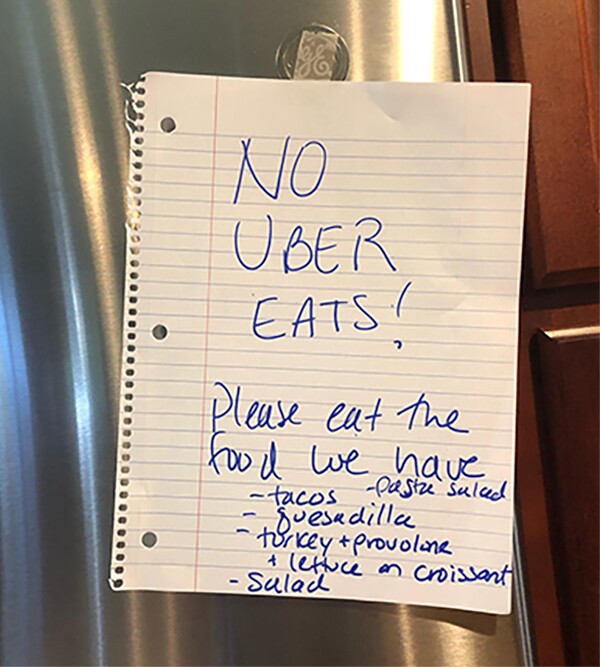 GE
NO
UBER
EATS!
Please eat the
food we have
-tacos -pasta salad
- quesadilla
- turkey + provolone
+ lettuce on croissant
- Salad